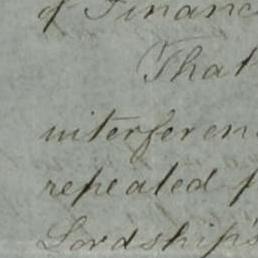 of Financ
That
interferen
repeated p
Lordship's